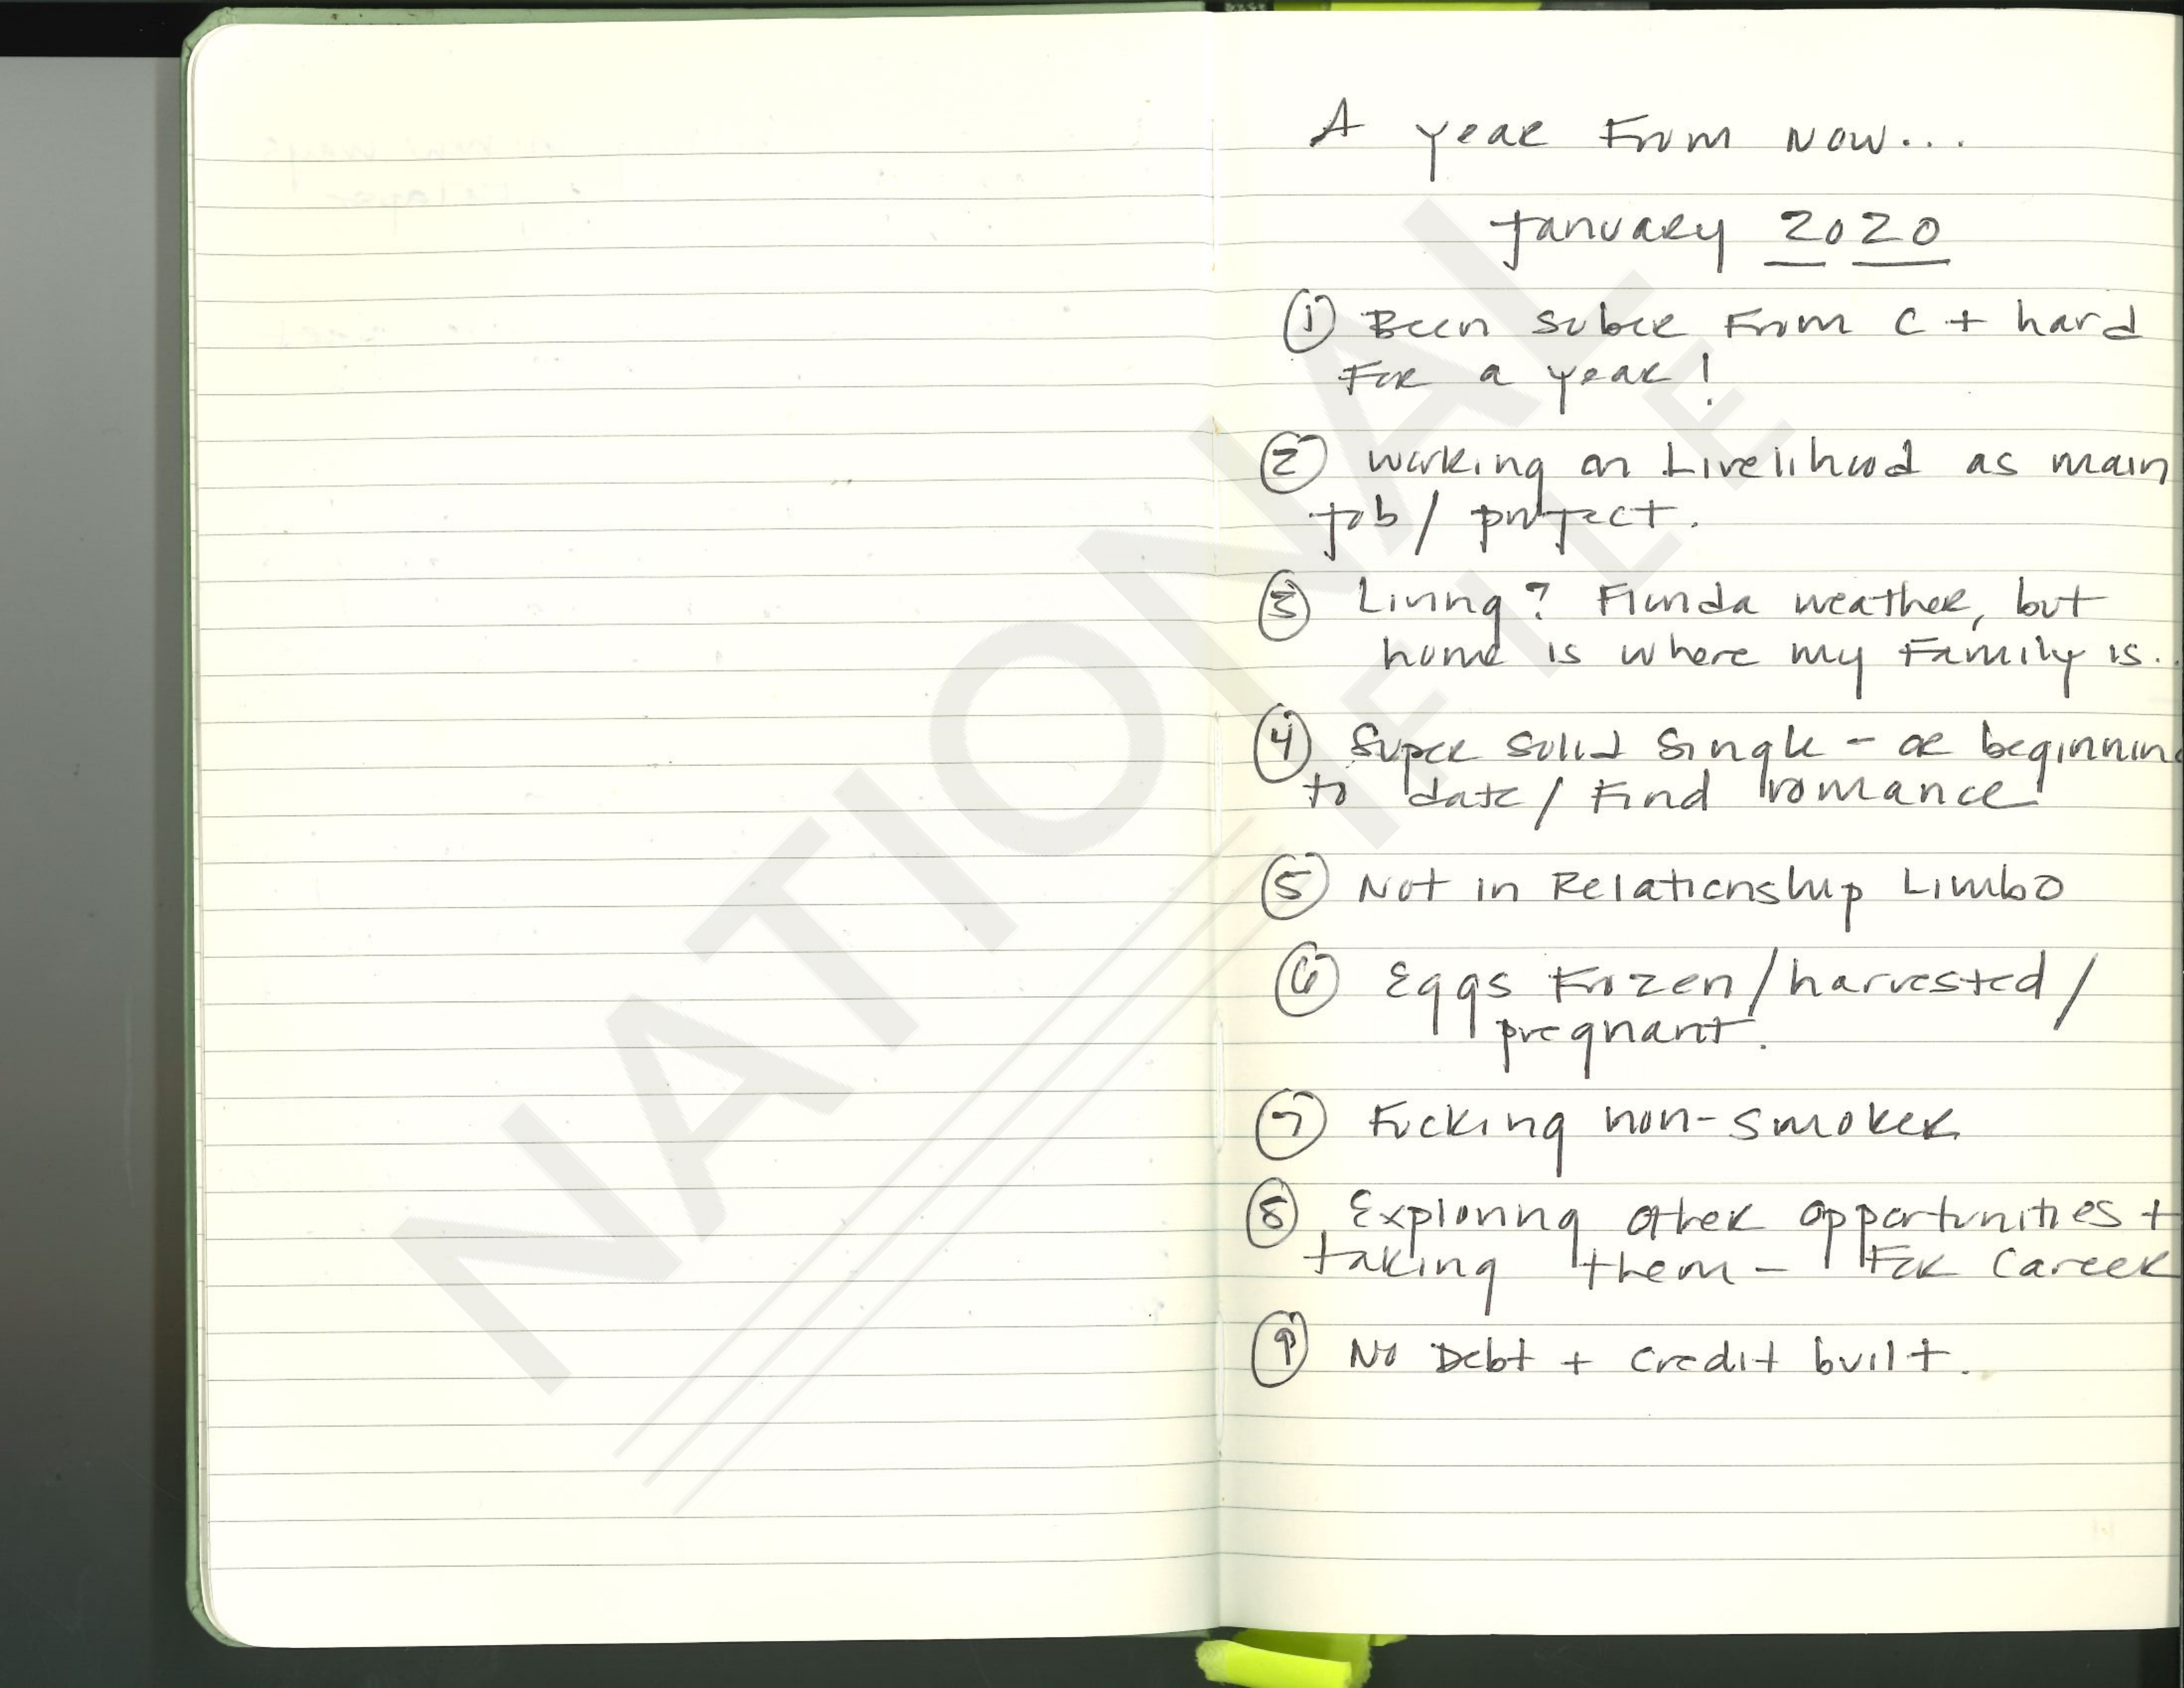 A year From Now...
January 2020
① Been sober From C + hard
For a year!
② working on Livelihood as main
job / project.
③ Living? Florida weather, but
home is where my Family is..
④ Super Solid Single - or beginning
to date / Find romance
⑤ Not in Relationship Limbo
⑥ Eggs Frozen / harvested /
pregnant.
⑦ Fucking non-smoker
⑧ Exploring other opportunities +
taking them - For Career
⑨ No Debt + Credit built.
NATIONAL
FILE